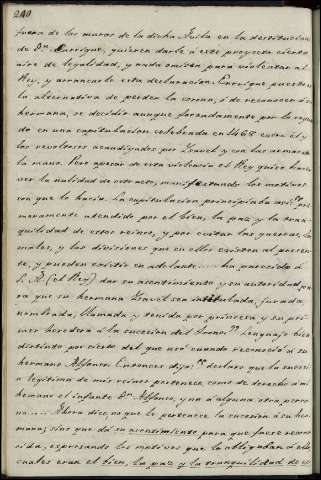 240
fuera de los muros de la dicha Avila en la destitucion
de Dn. Enrique, quieren darle á este proyecto cierto
aire de legalidad, y nada omiten para violentar al
Rey, y arrancarle esta declaracion. Enrique puesto en
la alternativa de perder la corona, ó de reconocer á su
hermana, se decidió aunque forzadamente por lo segun
do en una capitulacion celebrada en 1468 entre él y
los revoltosos acaudijados por Isavel y con las armas en
la mano. Pero apesar de esta violencia el Rey quiso hacer
ver la nulidad de este acto, manifestando los motivos
con que lo hacia. La capitulacion principiaba así "pri
meramente atendido por el bien, la paz y la tran
quilidad de estos reinos, y por evitar las guerras, 
males, y las divisiones que en ellos existen al presen
te, y pueden existir en adelante..... ha parecido á
S. A. (el Rey) dar su asentimiento y su autoridad pa
ra que su hermana Isavel sea intitulada, jurada,
nombrada, llamada y tenida por princesa y su pri
mer heredera á la sucesion del trono." Lenguaje bien
distinto por cierto del que usó cuando reconoció á su
hermano Alfonso. Entonces dijo: "declaro que la sucesi
on legitima de mis reinos pertenece como de derecho á mi
hermano el infante Dn. Alfonso, y no á alguna otra perso
na..... Ahora dice, no que le pertenece la sucesion á su her
mana; sino que dá su asentimiento para que fuese recono
cida, espresando los motivos que le obligaban á ello
cuales eran el bien, la paz y la tranquilidad de es